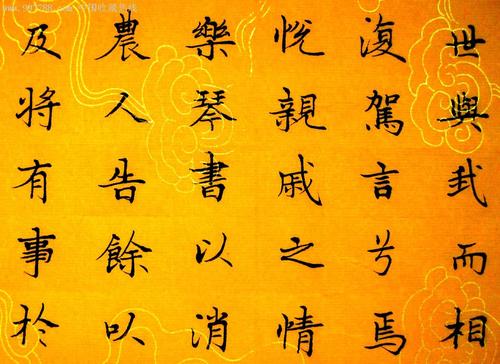 www.997788.com 中国收藏热线
世與我而相
復駕言兮焉
悅親戚之情
樂琴書以消
農人告餘以
及将有事於